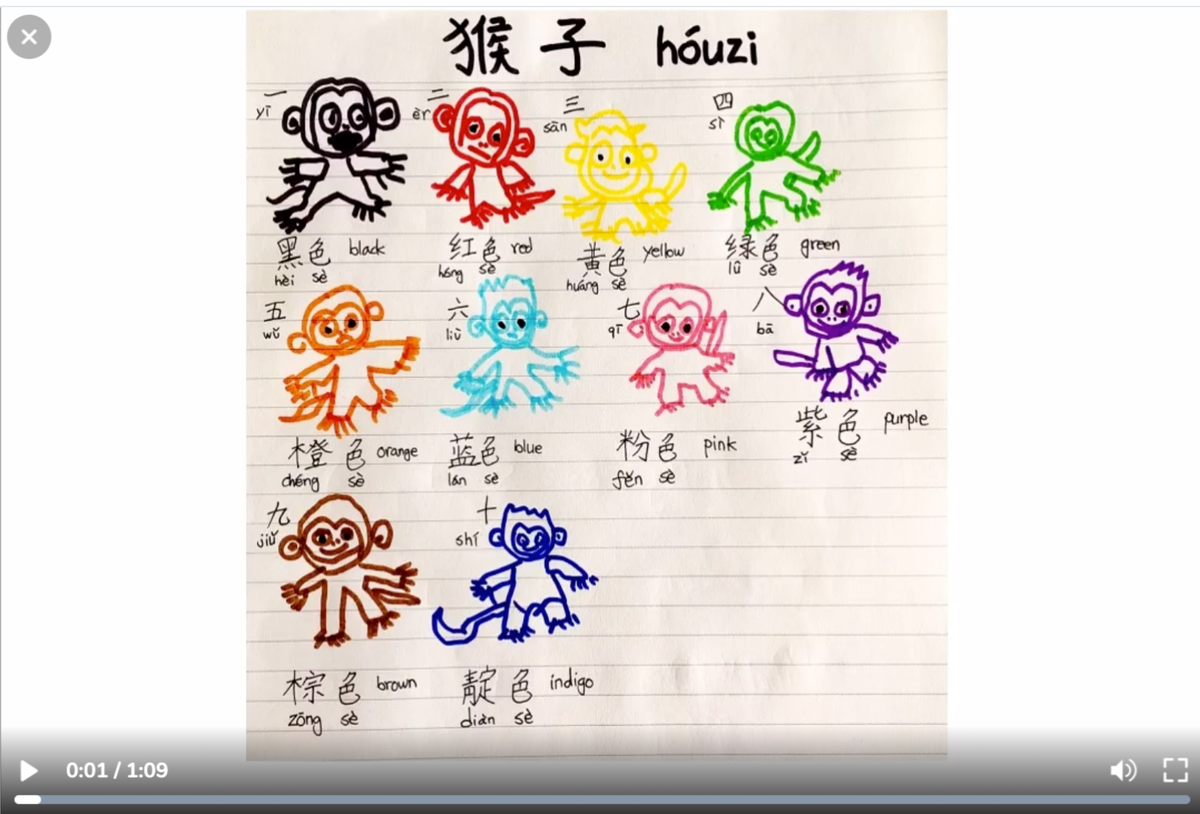 猴子 hóuzi
一 二 三 四
yī èr sān sì
黑色 black 红色 red 黄色 yellow 绿色 green
hēi sè hóng sè huáng sè lǜ sè
五 六 七 八
wǔ liù qī bā
橙色 orange 蓝色 blue 粉色 pink 紫色 purple
chéng sè lán sè fěn sè zǐ sè
九 十
jiǔ shí
棕色 brown 靛色 indigo
zōng sè diàn sè
0:01 / 1:09